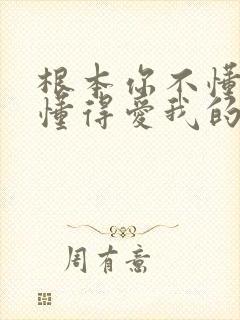 根本你不懂
懂得爱我的
周有意